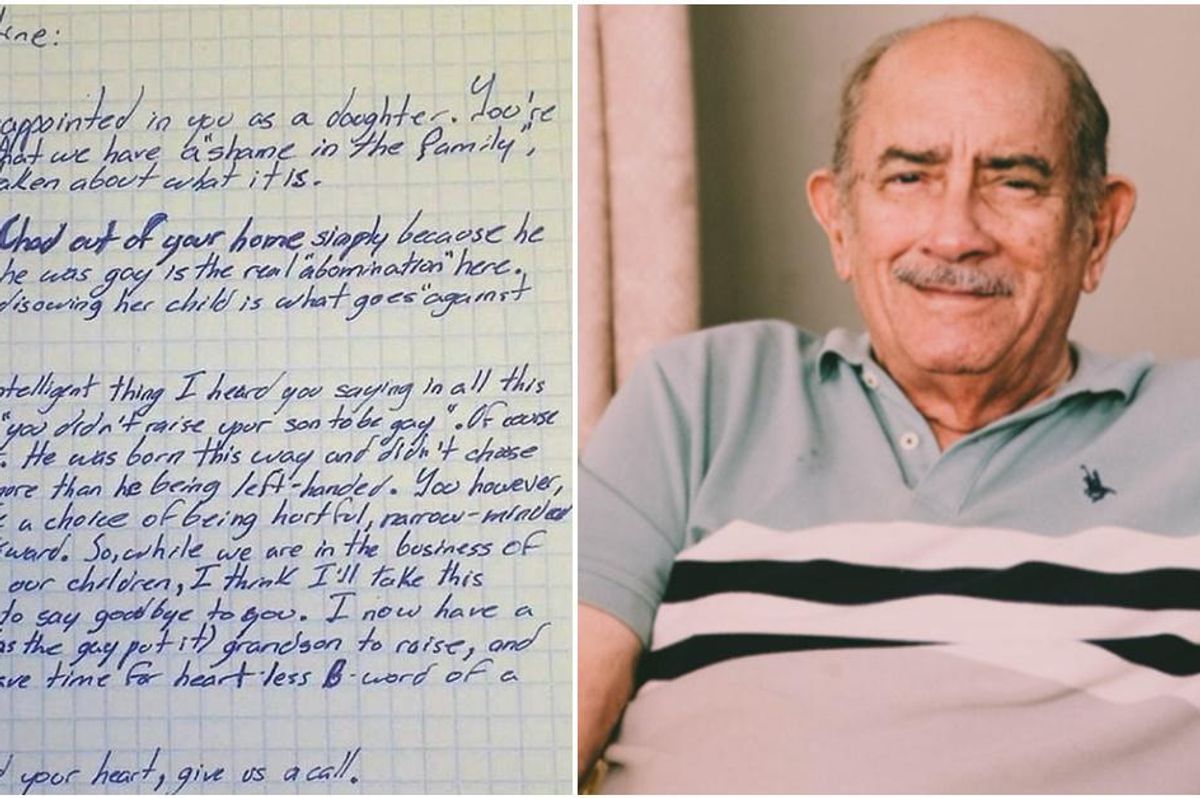 ine:
appointed in you as a daughter. You're
hat we have a "shame in the family",
aken about what it is.
Chad out of your home simply because he
he was gay is the real "abomination" here.
disowing her child is what goes "against
ntelligent thing I heard you saying in all this
"you didn't raise your son to be gay". Of course
. He was born this way and didn't choose
more than he being left-handed. You however,
a choice of being hurtful, narrow-minded
ward. So, while we are in the business of
our children, I think I'll take this
to say goodbye to you. I now have a
as the gay put it) grandson to raise, and
ave time for heart-less B-word of a
d your heart, give us a call.